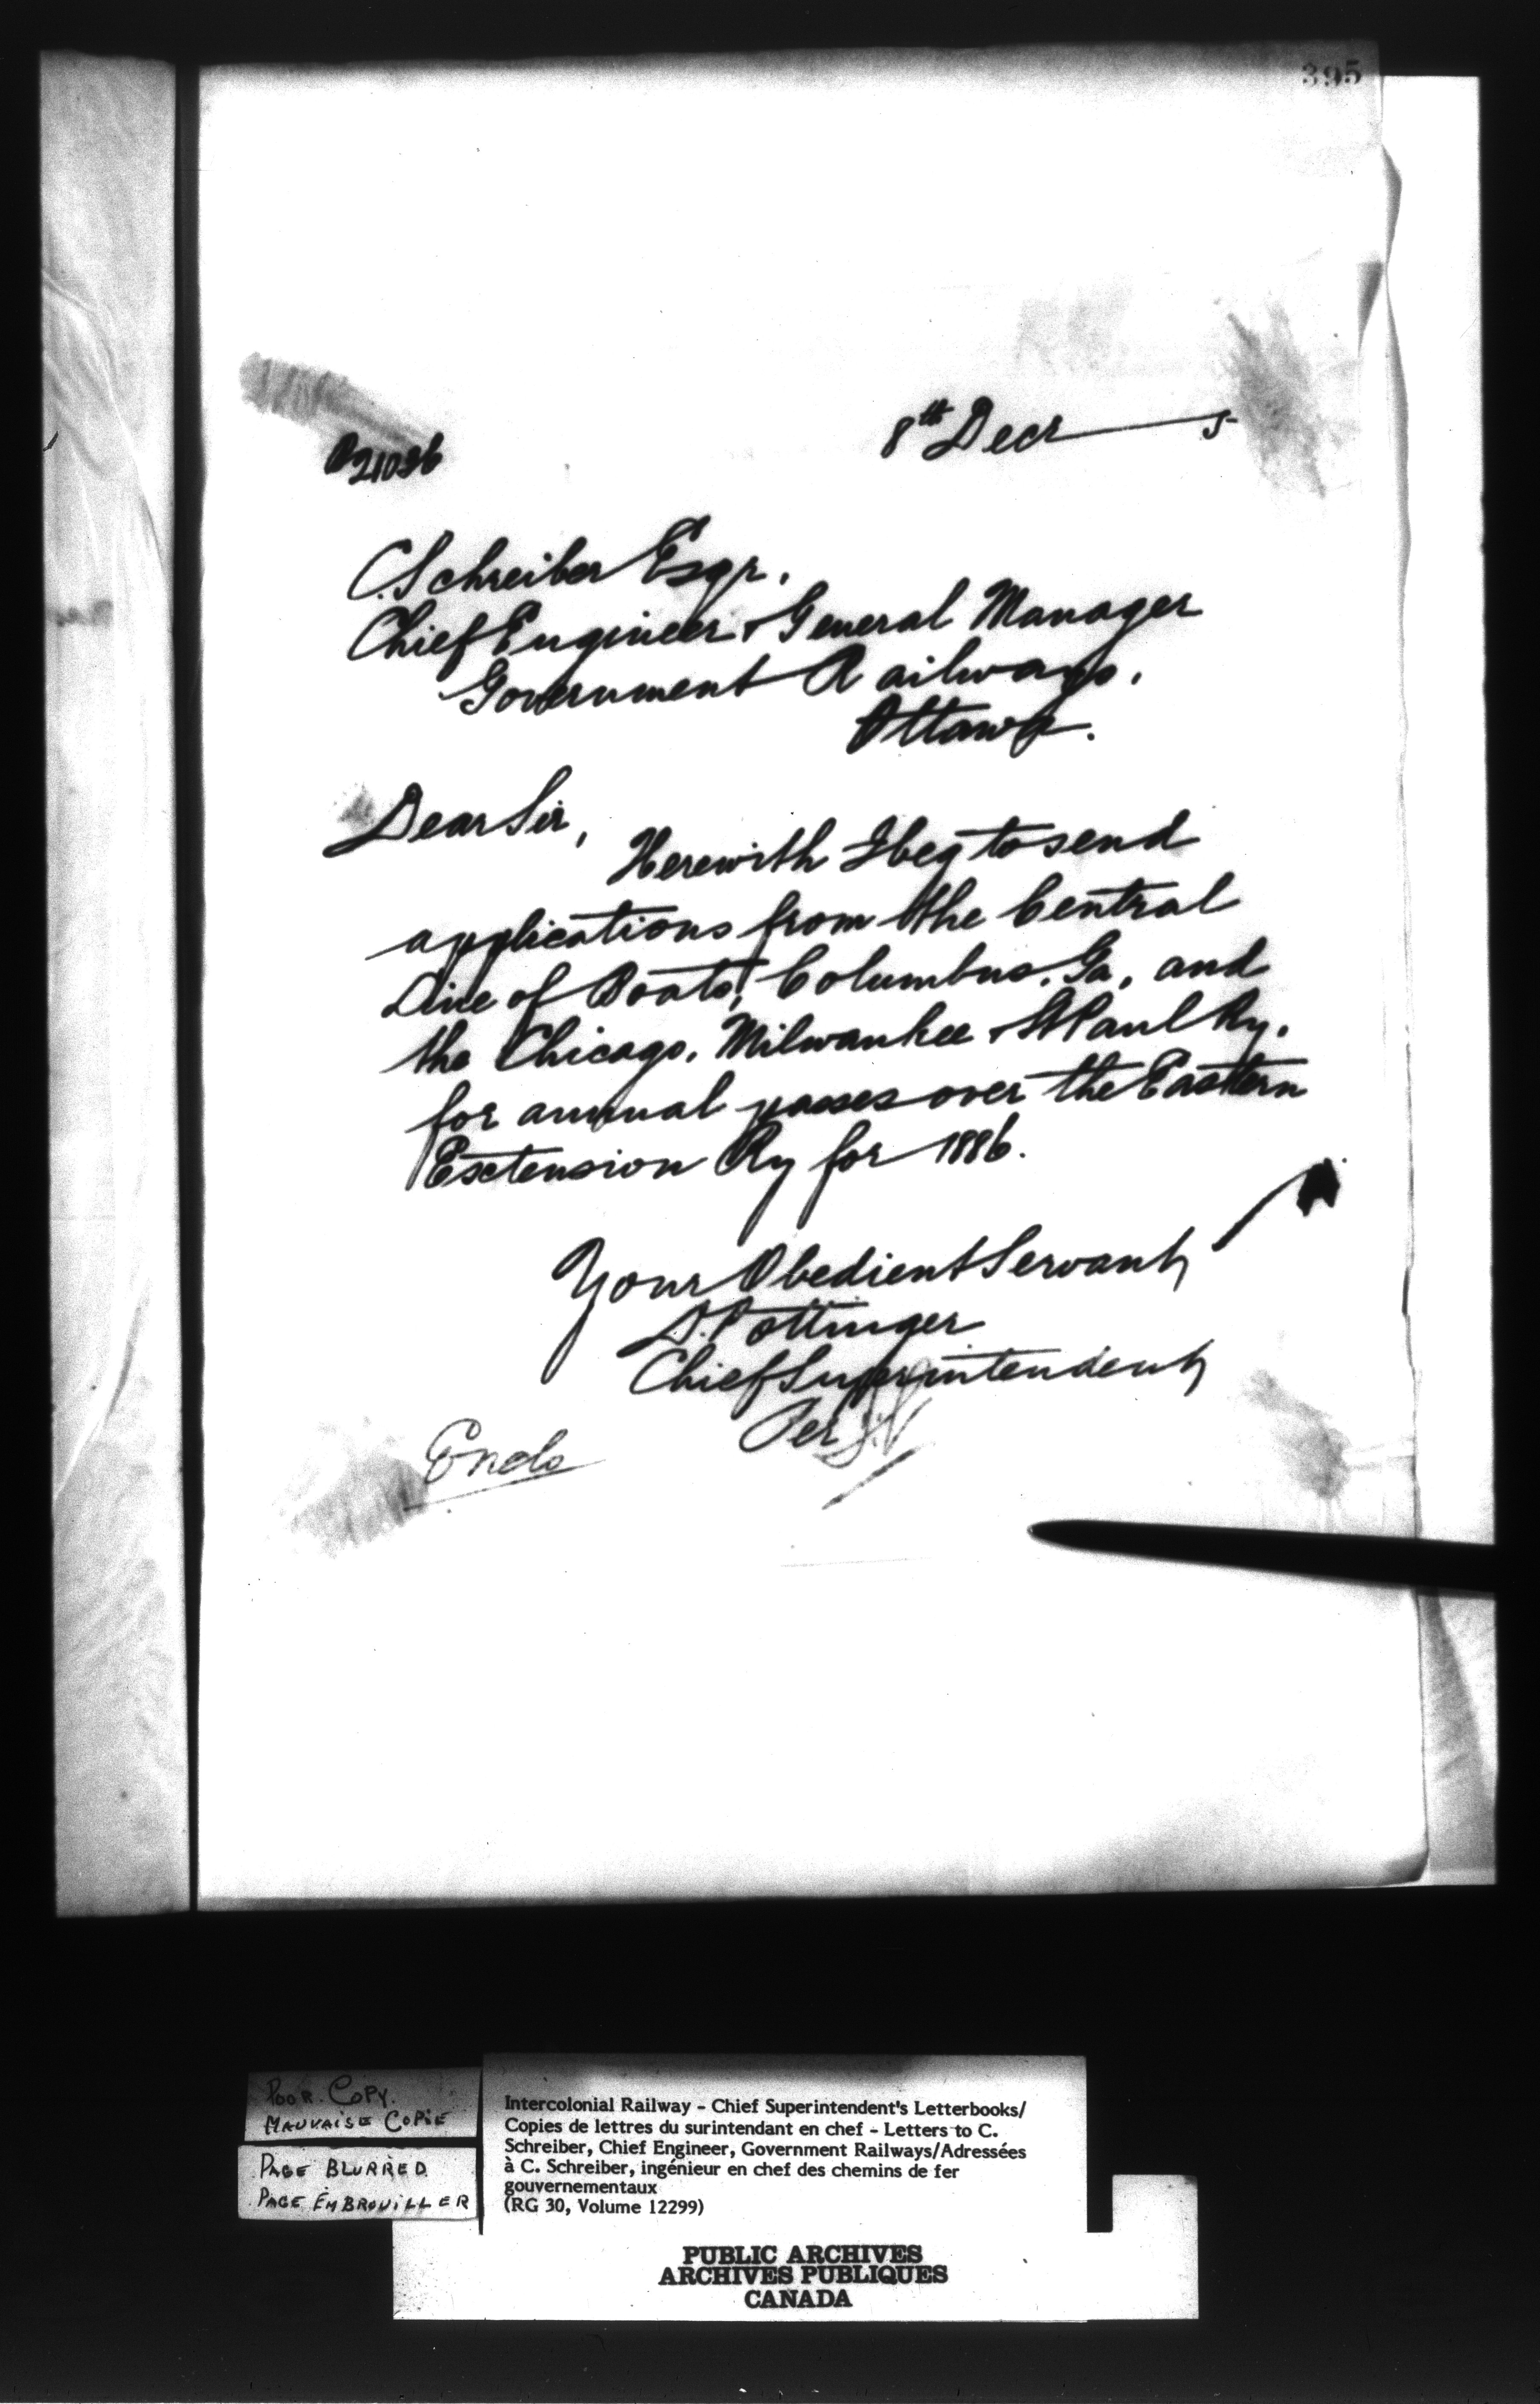 395
8th Decr 5
21036
C. Schreiber Esqr.
Chief Engineer & General Manager
Government Railways.
Ottawa.
Dear Sir,
Herewith I beg to send
applications from the Central
Line of Boats, Columbus, Ga, and
the Chicago, Milwaukee & St Paul Ry.
for annual passes over the Eastern
Extension Ry for 1886.
Your Obedient Servant
D. Pottinger
Chief Superintendent
Per
Encls
POOR COPY.
MAUVAISE COPIE
PAGE BLURRED
PAGE EMBROUILLER
Intercolonial Railway - Chief Superintendent's Letterbooks/
Copies de lettres du surintendant en chef - Letters to C.
Schreiber, Chief Engineer, Government Railways/Adressées
à C. Schreiber, ingénieur en chef des chemins de fer
gouvernementaux
(RG 30, Volume 12299)
PUBLIC ARCHIVES
ARCHIVES PUBLIQUES
CANADA